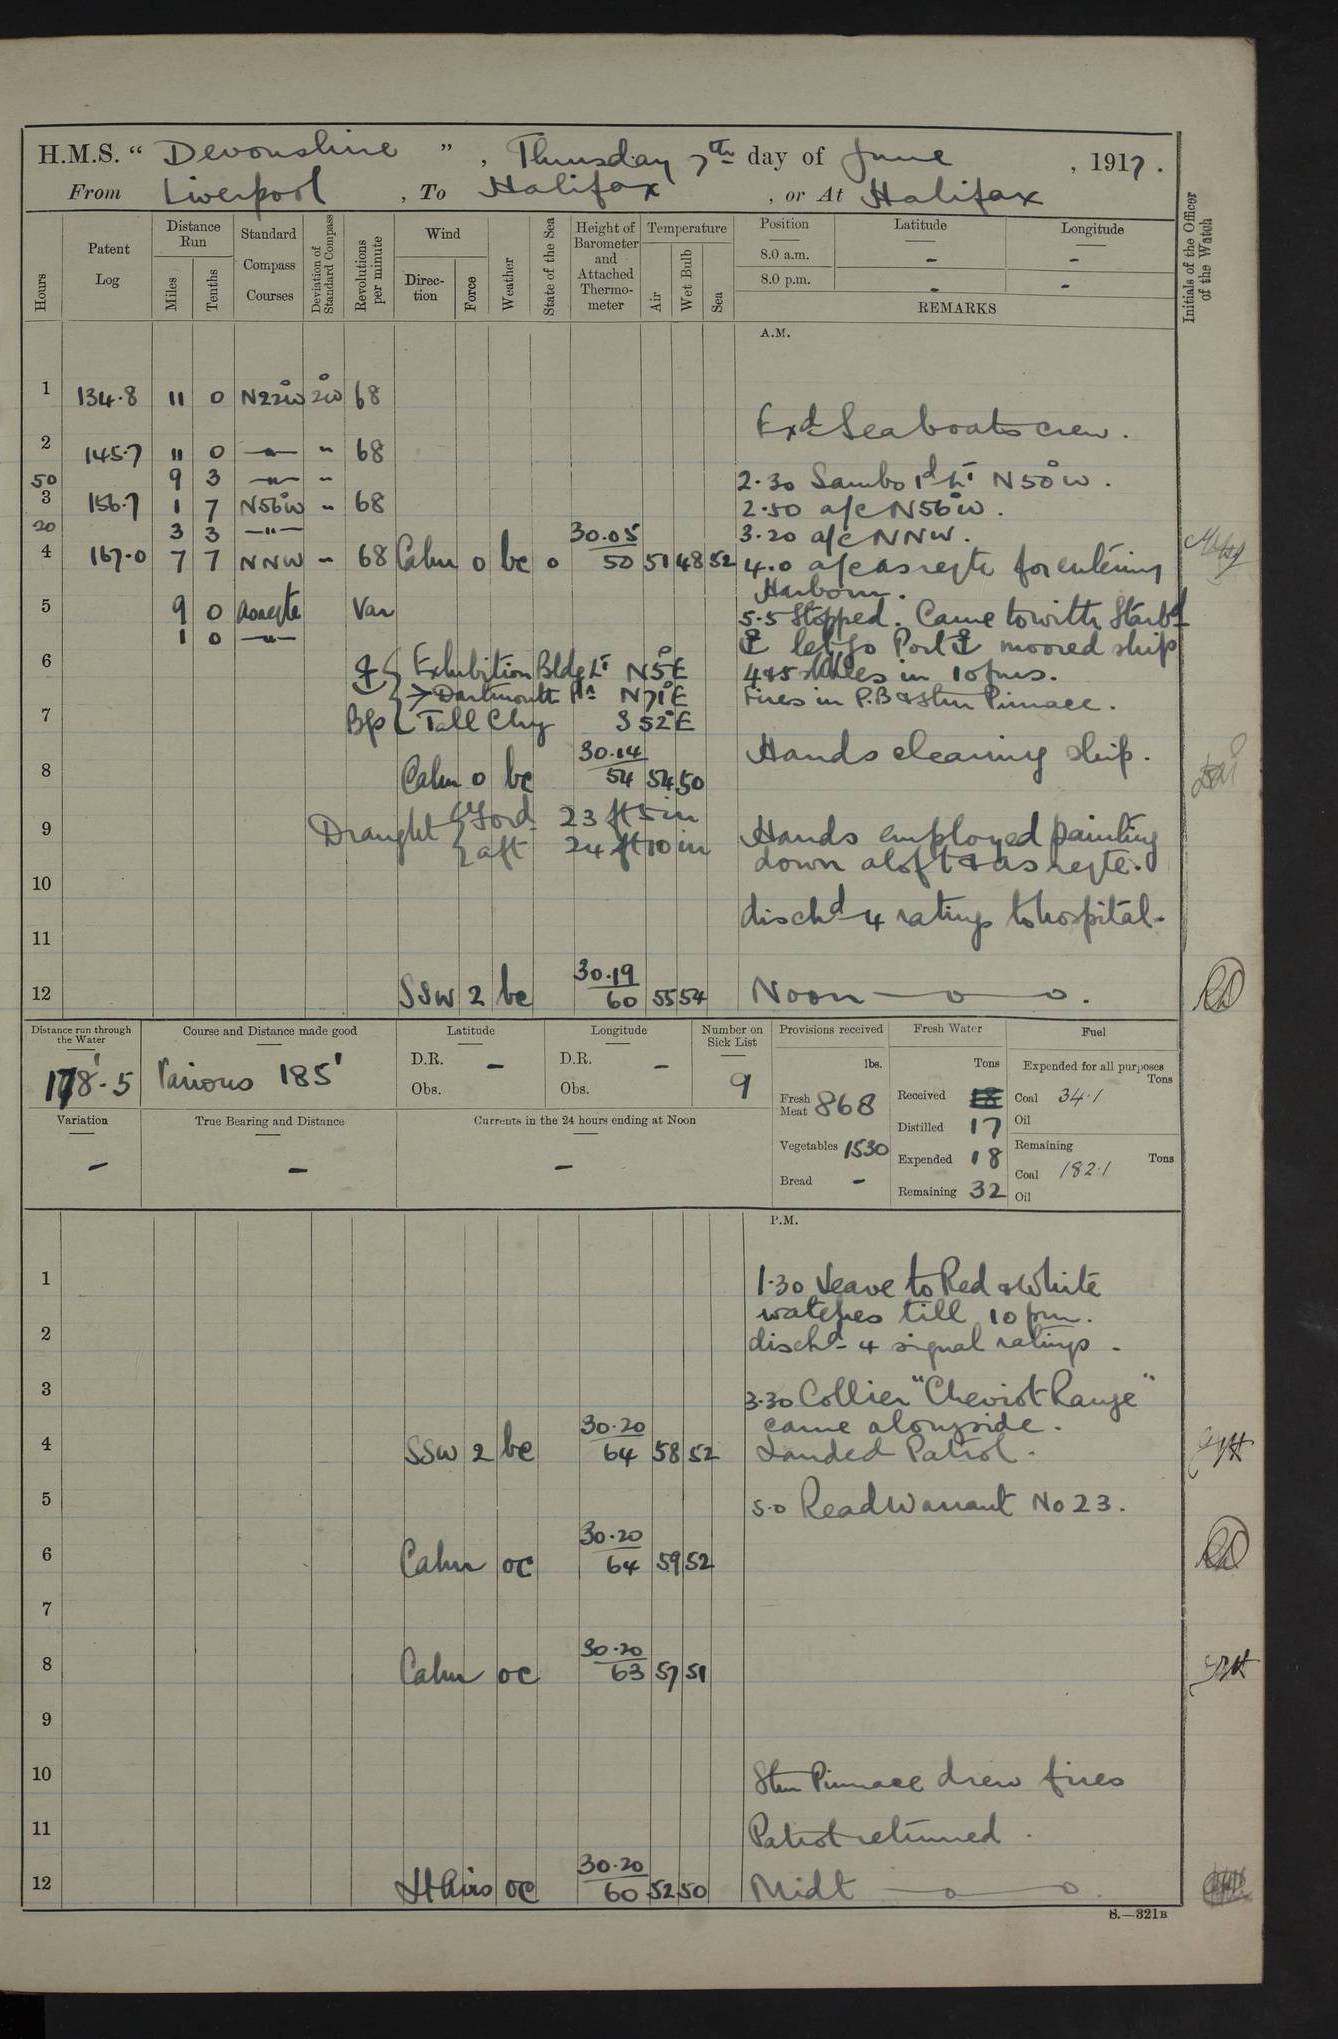 H.M.S. “ Devonshire ” , Thursday 7th day of June , 1917 .
From Liverpool , To Halifax , or At Halifax
Hours
Patent Log
Distance Run
Miles
Tenths
Standard Compass Courses
Deviation of Standard Compass
Revolutions per minute
Wind
Direction
Force
Weather
State of the Sea
Height of Barometer and Attached Thermometer
Temperature
Air
Wet Bulb
Sea
Position Latitude Longitude
8.0 a.m. - -
8.0 p.m. - -
REMARKS
Initials of the Officer of the Watch
A.M.
1 134.8 11 0 N22°W 2°W 68
Exd Seaboats crew .
2 145.7 11 0 —"— " 68
50 9 3 —"— " 2.30 Sambo Id Lt N50°W .
3 156.7 1 7 N56°W " 68 2.50 a/c N56°W .
20 3 3 —"— 30.05 3.20 a/c NNW .
4 167.0 7 7 NNW " 68 Calm 0 bc 0 50 51 48 52 4.0 a/c as reqte for entering
Harbour .
5 9 0 As reqte Var 5.5 Stopped . Came to with Starbd
1 0 —"— ⚓ let go Port ⚓ moored ship
6 ⚓ { Exhibition Bldg Lt N5°E 4 & 5 shkles in 10 fms.
> Dartmouth Pn N71°E Fires in P.B & Stm Pinnace .
7 Bgs { Tall Chy S52°E
30.14 Hands cleaning ship .
8 Calm 0 bc 54 54 50
9 Draught { Ford 23 ft 5 in Hands employed painting
{ aft 24 ft 10 in down aloft & as reqte .
10
dischd 4 ratings to hospital .
11
30.19
12 SSW 2 bc 60 55 54 Noon —o—o .
Distance run through the Water
178.5
Course and Distance made good
Various 185'
Latitude
D.R. -
Obs.
Longitude
D.R. -
Obs.
Number on Sick List
9
Provisions received
lbs.
Fresh Meat 868
Vegetables 1530
Bread -
Fresh Water
Tons
Received 18
Distilled 17
Expended 18
Remaining 32
Fuel
Expended for all purposes
Tons
Coal 34.1
Oil
Remaining
Tons
Coal 182.1
Oil
Variation
-
True Bearing and Distance
-
Currents in the 24 hours ending at Noon
-
P.M.
1 1.30 Leave to Red & White
watches till 10 pm .
2 dischd 4 signal ratings .
3 3.30 Collier "Cheviot Range"
30.20 came alongside .
4 SSW 2 bc 64 58 52 Landed Patrol .
5 5.0 Read Warrant No 23 .
30.20
6 Calm oc 64 59 52
7
30.20
8 Calm oc 63 57 51
9
10 Stm Pinnace drew fires
11 Patrol returned .
30.20
12 Lt Airs oc 60 52 50 Midt —o—o .
S.—321B